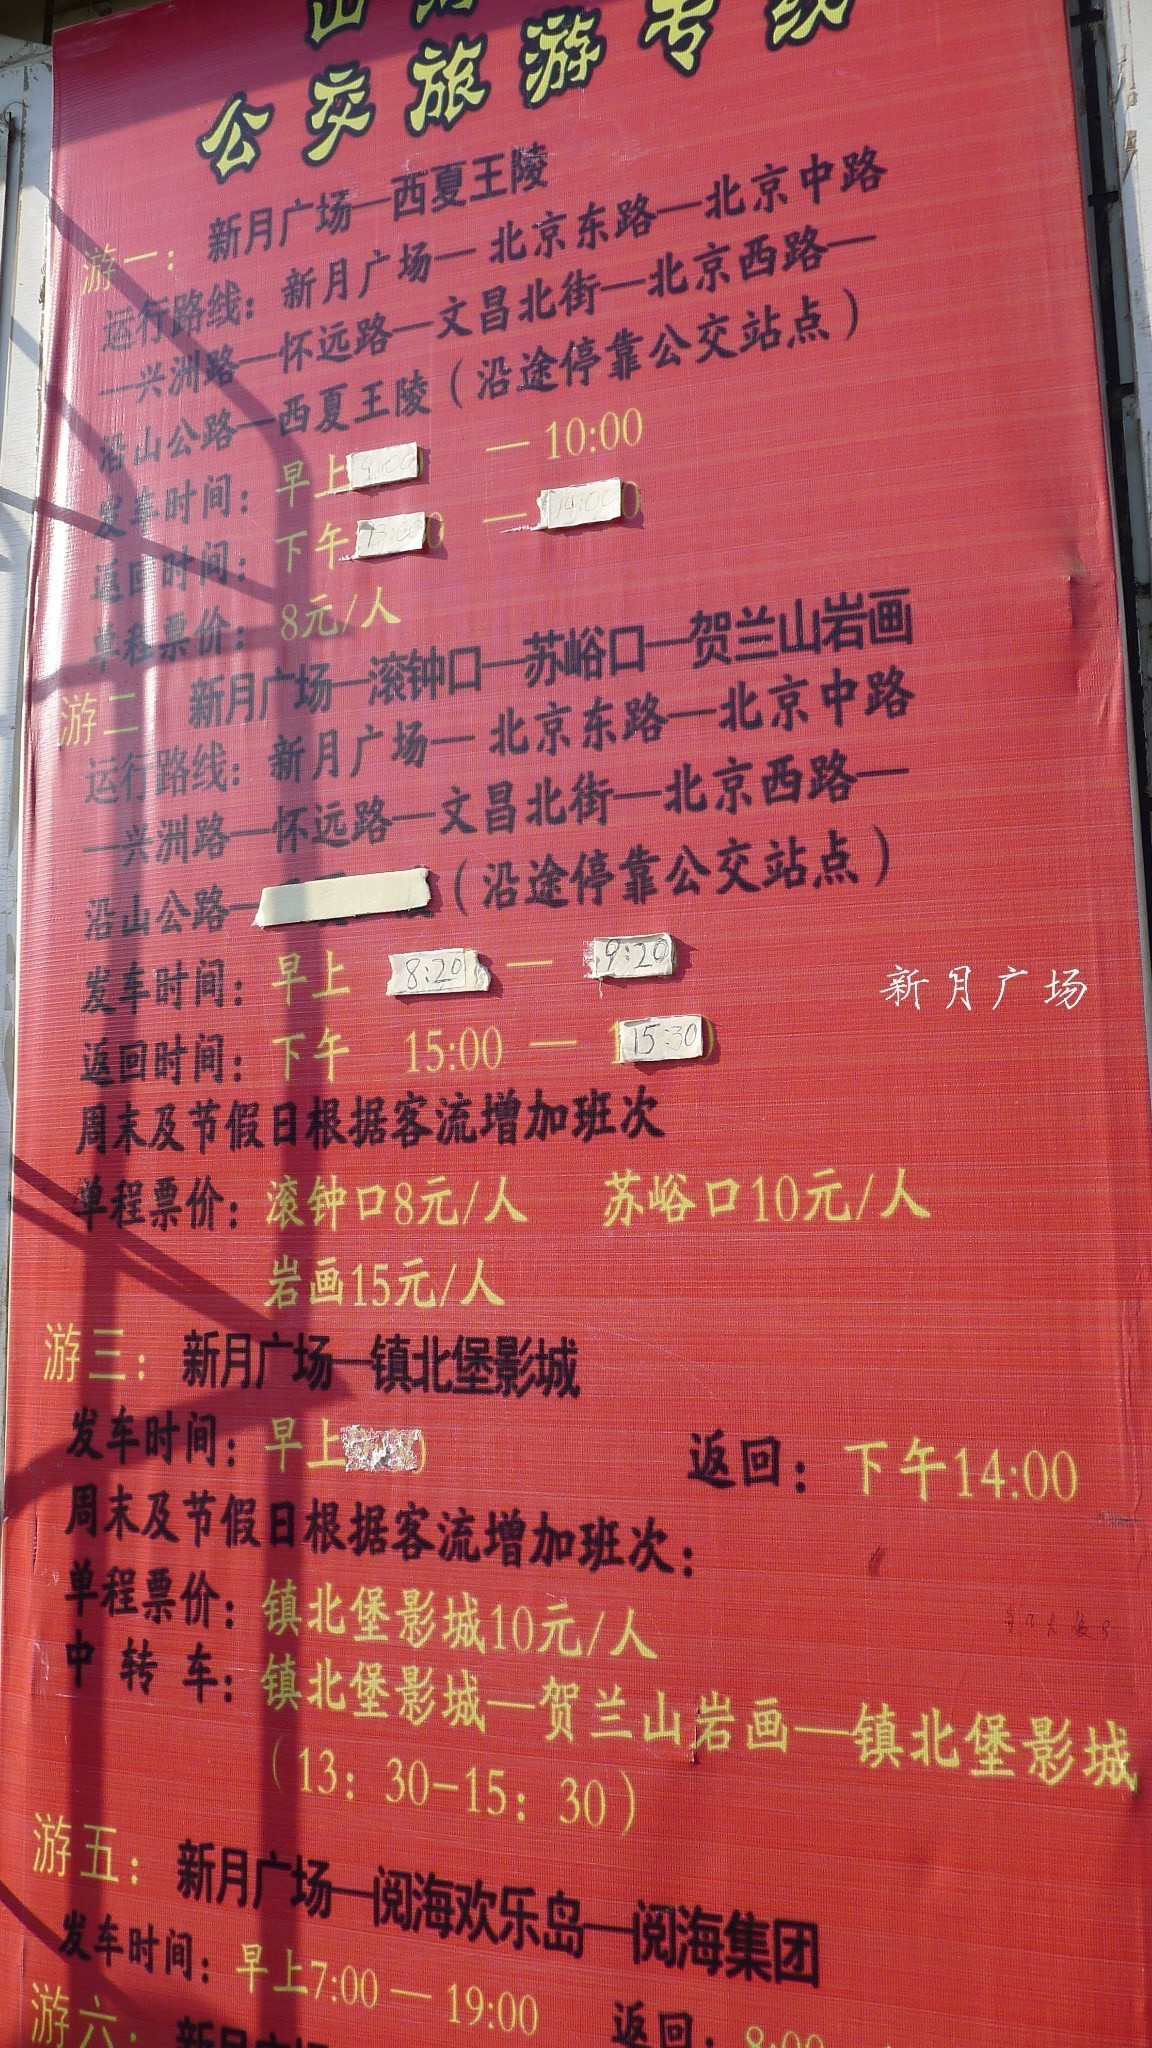 公交旅游专线
游一：新月广场—西夏王陵
运行路线：新月广场—北京东路—北京中路
—兴洲路—怀远路—文昌北街—北京西路—
沿山公路—西夏王陵（沿途停靠公交站点）
发车时间：早上 — 10:00
返回时间：下午 — 14:00
单程票价：8元/人
游二 新月广场—滚钟口—苏峪口—贺兰山岩画
运行路线：新月广场—北京东路—北京中路
—兴洲路—怀远路—文昌北街—北京西路—
沿山公路—（沿途停靠公交站点）
发车时间：早上 8:20 — 9:20
返回时间：下午 15:00 — 15:30
周末及节假日根据客流增加班次
单程票价：滚钟口8元/人 苏峪口10元/人
岩画15元/人
游三：新月广场—镇北堡影城
发车时间：早上 返回：下午14:00
周末及节假日根据客流增加班次：
单程票价：镇北堡影城10元/人
中转车：镇北堡影城—贺兰山岩画—镇北堡影城
（13：30-15：30）
游五：新月广场—阅海欢乐岛—阅海集团
发车时间：早上7:00 — 19:00 返回：8:00
游六：新月广场
新月广场